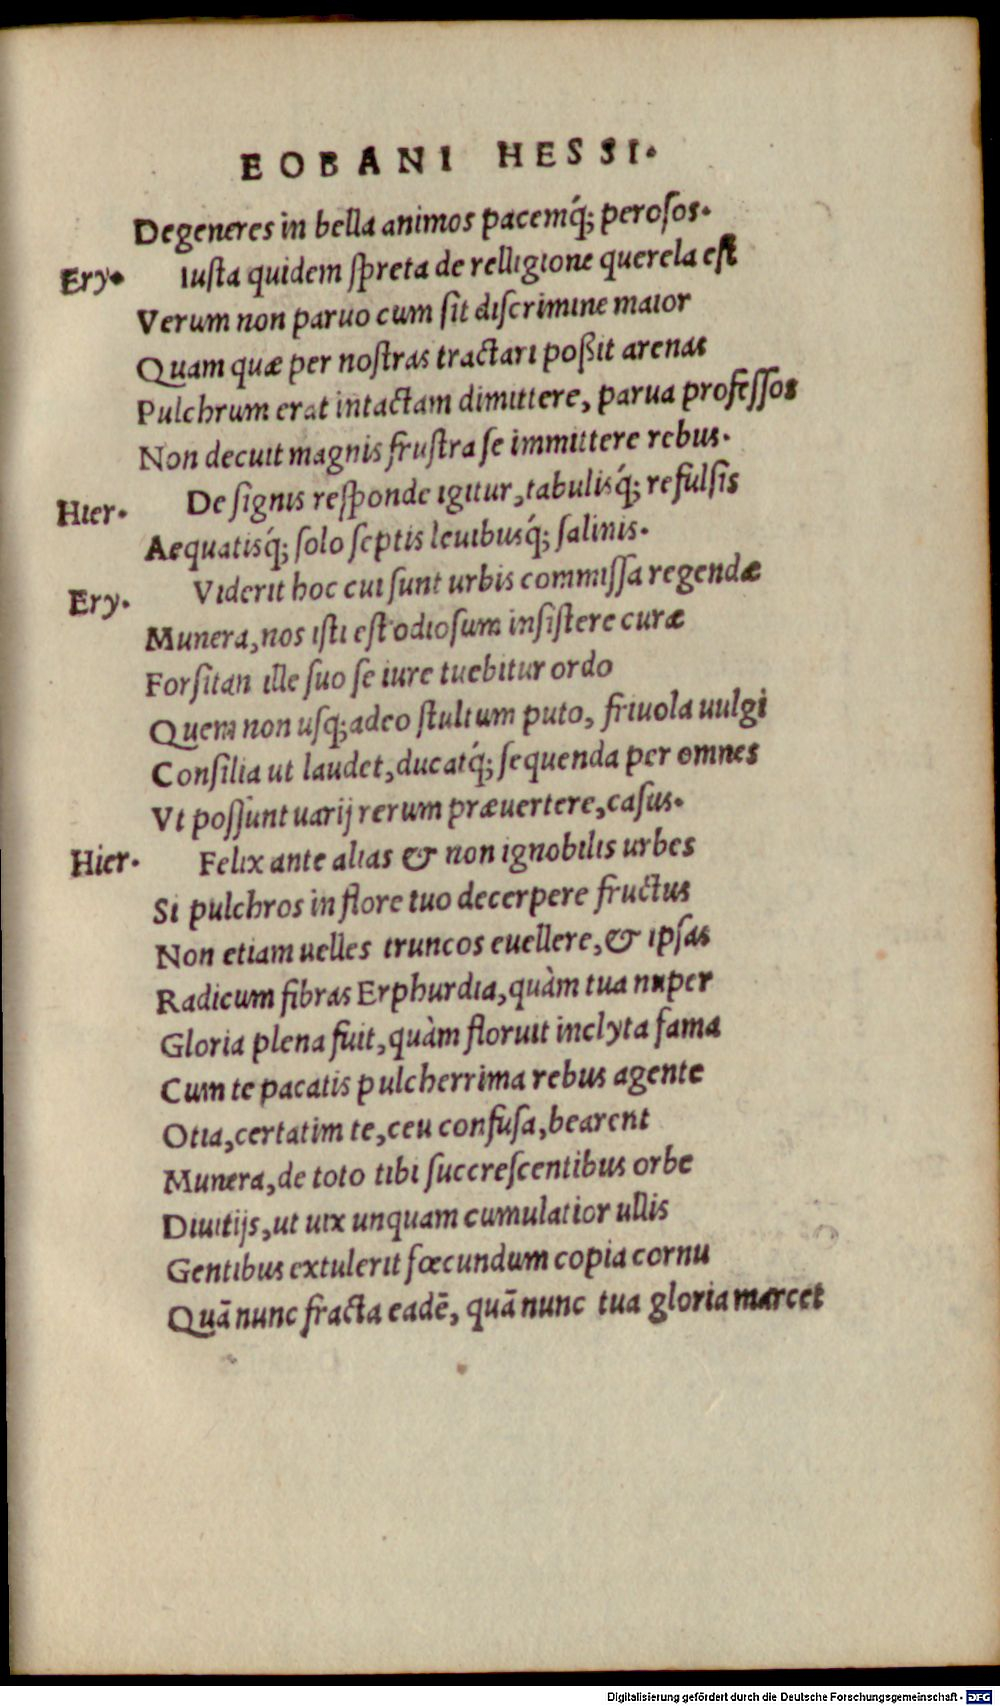 EOBANI HESSI.
Degeneres in bella animos pacemq́; perosos.
Ery. Iusta quidem spreta de relligione querela est
Verum non paruo cum sit discrimine maior
Quam quæ per nostras tractari poßit arenas
Pulchrum erat intactam dimittere, parua professos
Non decuit magnis frustra se immittere rebus.
Hier. De signis responde igitur, tabulisq́; refulsis
Aequatisq́; solo septis leuibusq́; salinis.
Ery. Viderit hoc cui sunt urbis commissa regendæ
Munera, nos isti est odiosum insistere curæ
Forsitan ille suo se iure tuebitur ordo
Quem non usq; adeo stultum puto, friuola uulgi
Consilia ut laudet, ducatq́; sequenda per omnes
Vt possunt uarij rerum præuertere, casus.
Hier. Felix ante alias & non ignobilis urbes
Si pulchros in flore tuo decerpere fructus
Non etiam uelles truncos euellere, & ipsas
Radicum fibras Erphurdia, quàm tua nuper
Gloria plena fuit, quàm floruit inclyta fama
Cum te pacatis pulcherrima rebus agente
Otia, certatim te, ceu confusa, bearent
Munera, de toto tibi succrescentibus orbe
Diuitijs, ut uix unquam cumulatior ullis
Gentibus extulerit fœcundum copia cornu
Quā nunc fracta eadē, quā nunc tua gloria marcet
Digitalisierung gefördert durch die Deutsche Forschungsgemeinschaft - DFG